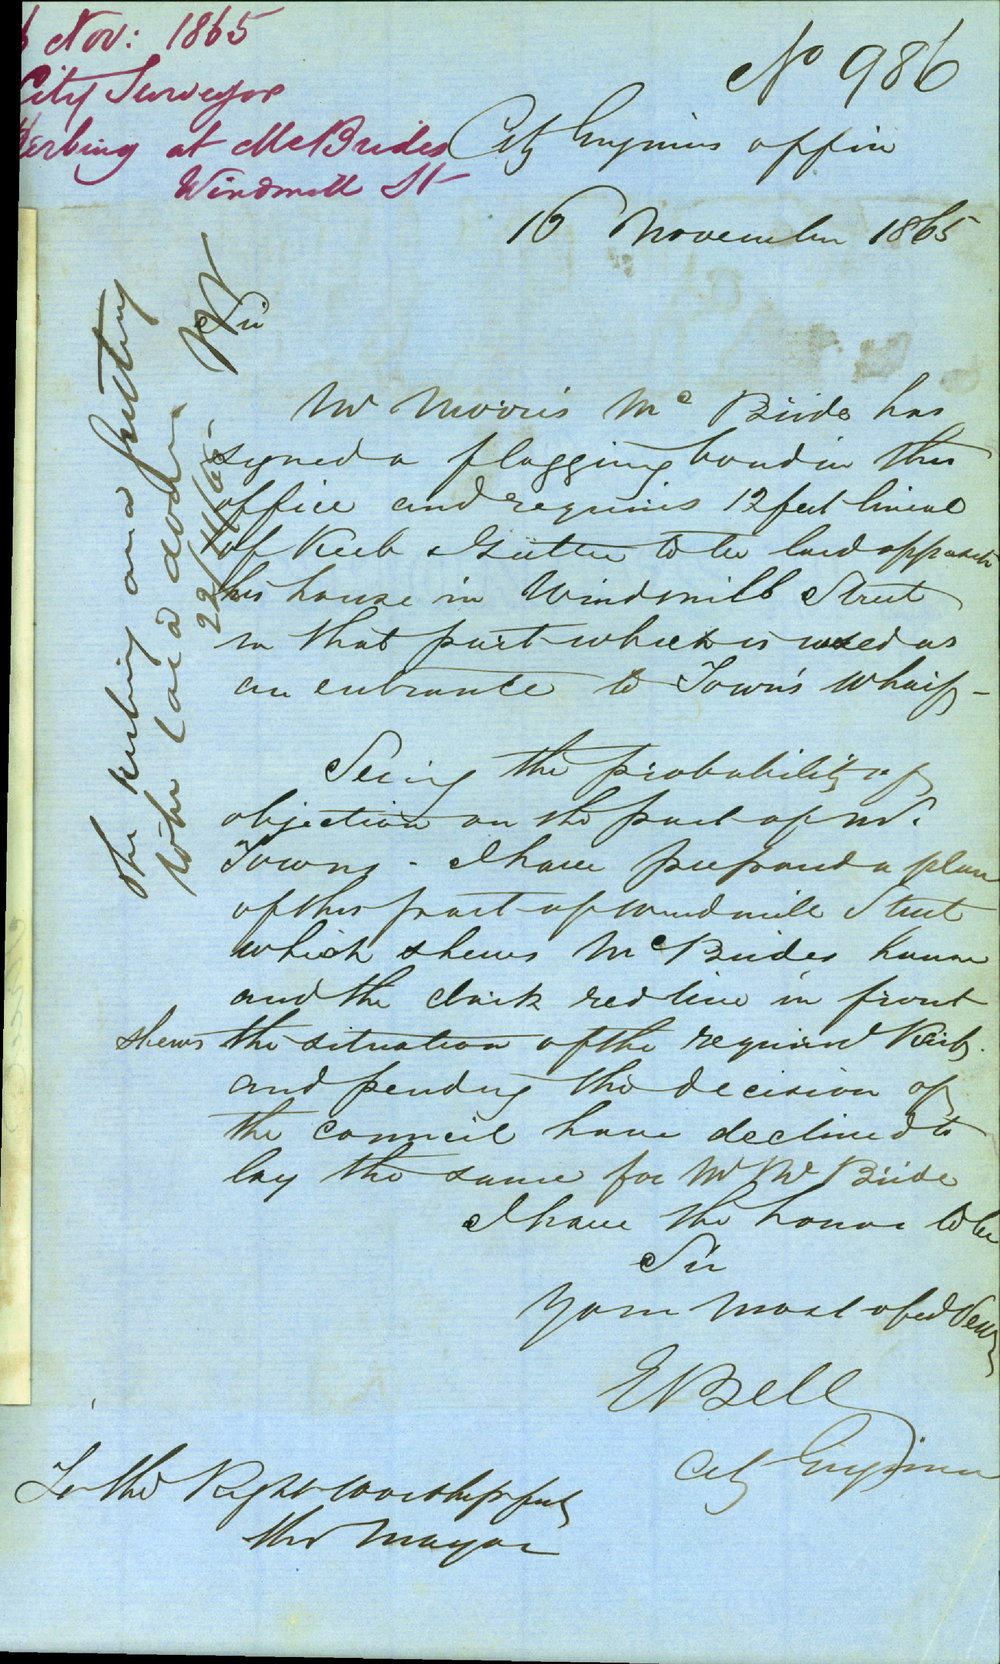 6 Nov: 1865
City Surveyor
Kerbing at McBrides
Windmill St
No 986
City Engineers office
16 November 1865
Sir
Mr Morris Mc Bride has
signed a flagging bond in this
office and requires 12 feet lineal
of Kerb & Gutter to be laid opposite
his house in Windmill Street
in that part which is used as
an entrance to Town's Wharf -
Seeing the probability of
objection on the part of Mr.
Towns - I have prepared a plan
of this part of Windmill Street
which shews McBrides house
and the dark red line in front
shews the situation of the required Kerb.
and pending the decision of
the Council have declined to
lay the same for Mr McBride
I have the honor to be
Sir
Your most obed Serv
E Bell
City Engineer
To the Right Worshipful
the Mayor
The kerbing and guttering
to be laid down.
22/11/65-